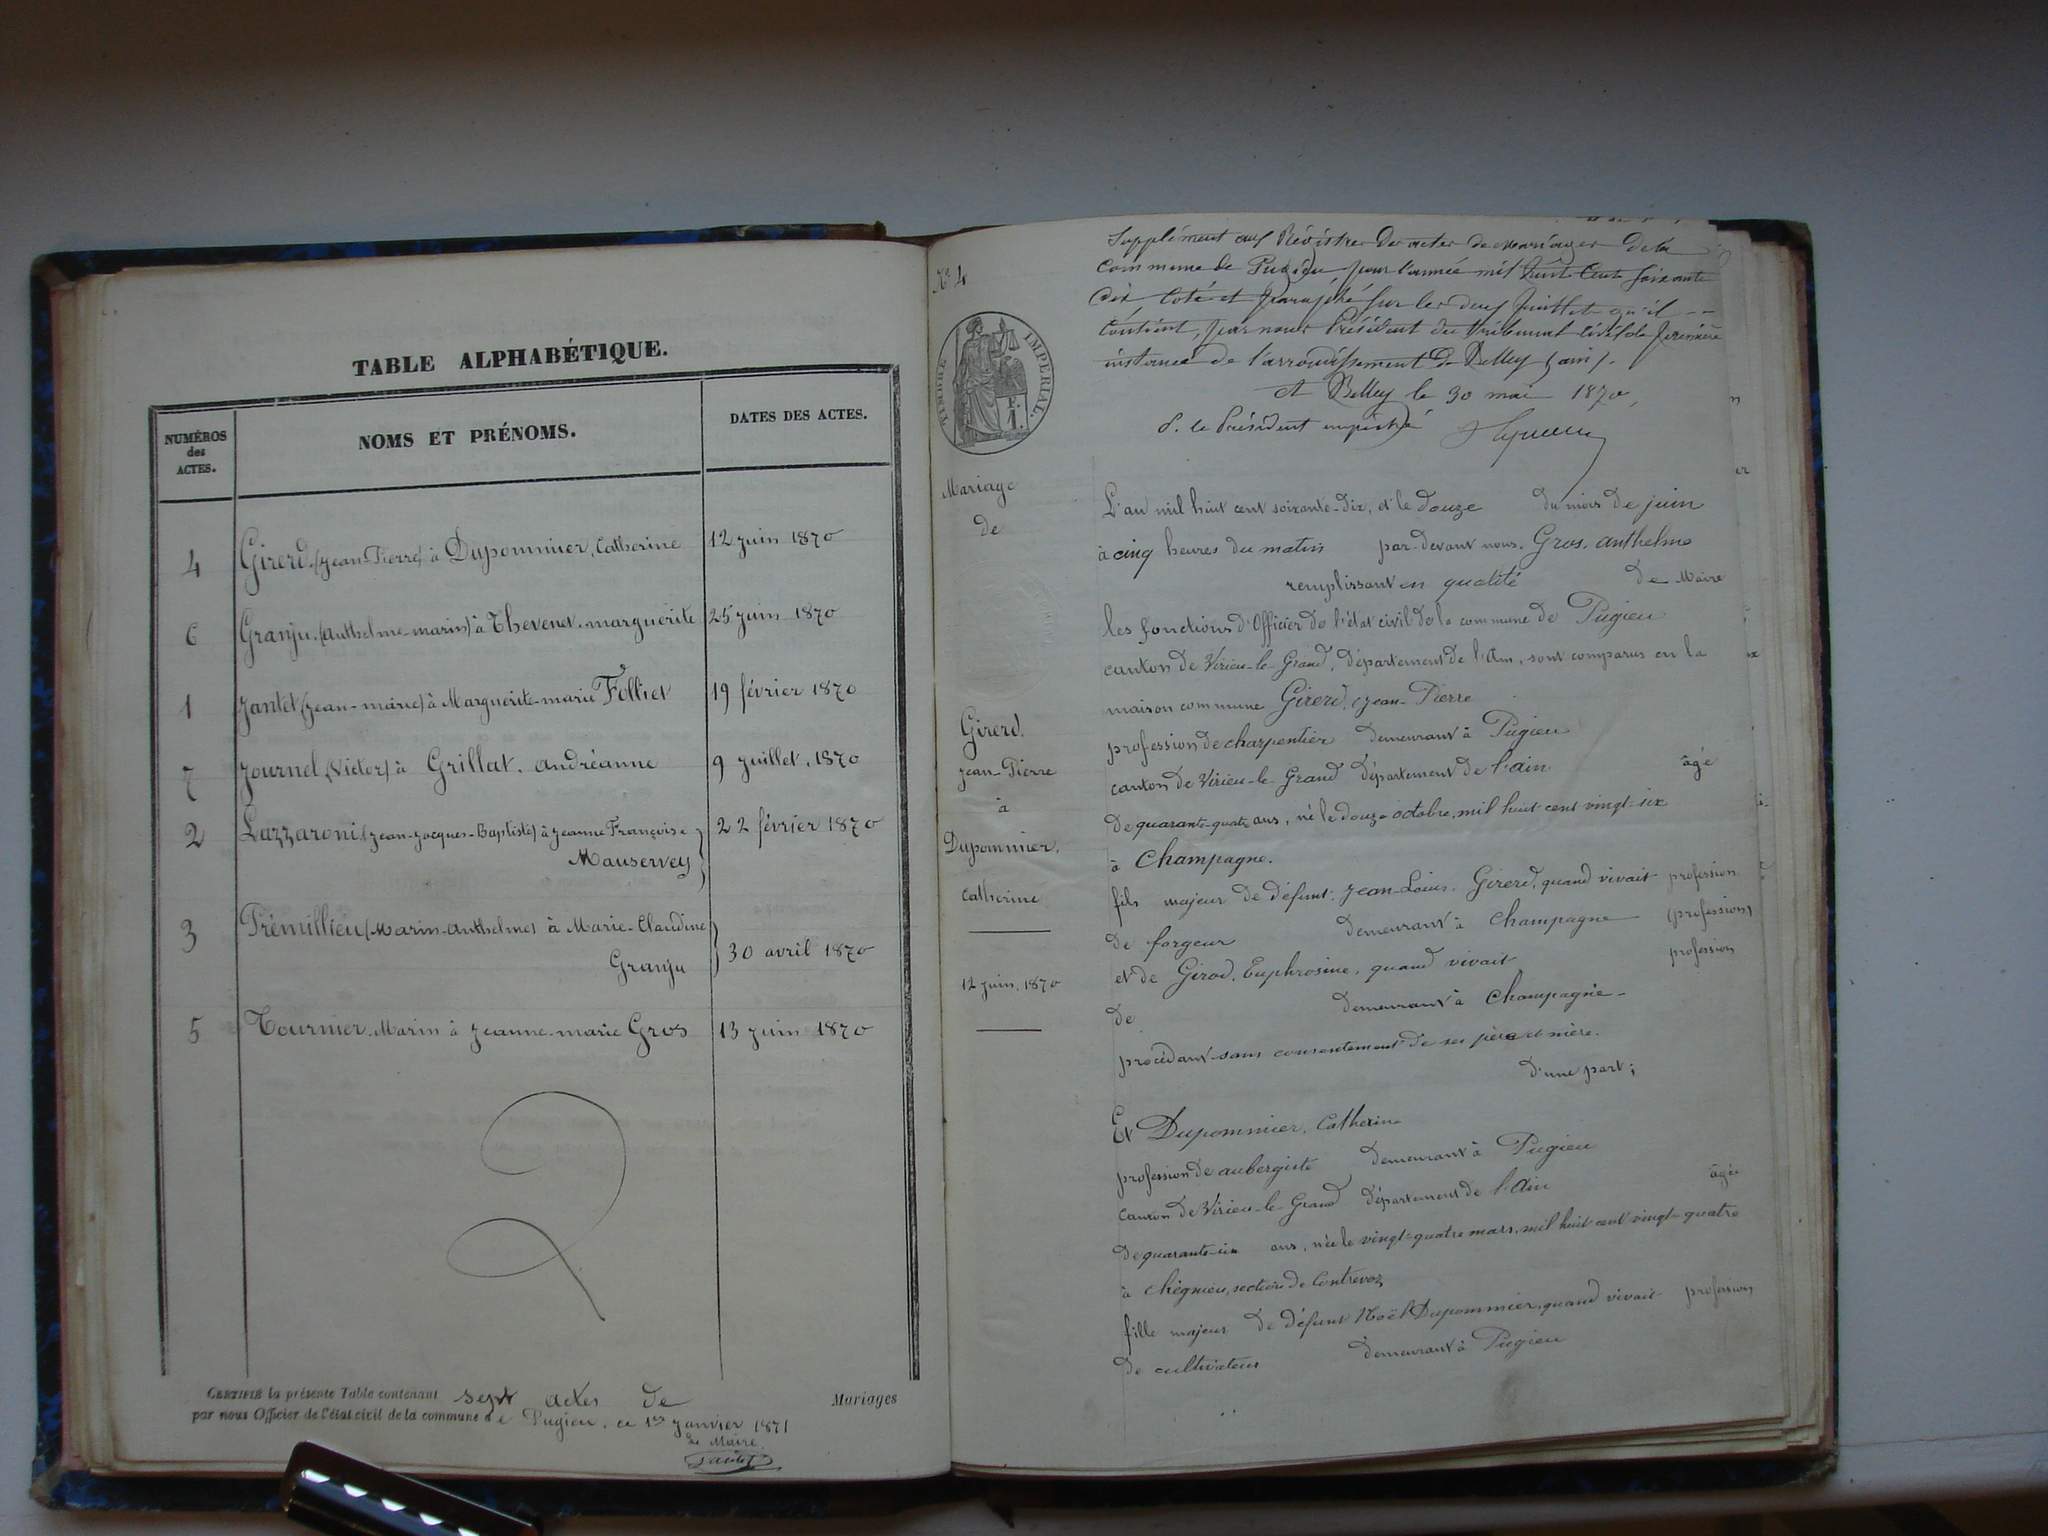 TABLE ALPHABÉTIQUE.
NUMÉROS
des
ACTES.
NOMS ET PRÉNOMS.
DATES DES ACTES.
4 Girerd (Jean-Pierre) à Dupommier, Catherine 12 juin 1870
6 Granju (Anthelme-marin) à Thevenet, marguerite 25 juin 1870
1 Jantet (Jean-marie) à Marguerite-marie Folliet 19 février 1870
7 Journel (Victor) à Grillat, andréanne 9 juillet, 1870
2 Lazzaroni (Jean-Jacques-Baptiste) à Jeanne Françoise 22 février 1870
Mauservey
3 Trémillieu (Marin-Anthelme) à Marie-Claudine
Granju 30 avril 1870
5 Tournier, Marin à Jeanne-marie Gros 13 juin 1870
CERTIFIÉ la présente Table contenant sept actes de Mariages
par nous Officier de l'état civil de la commune de Pugieu, ce 1er janvier 1871
Le Maire
Jantet
Nº 4
Supplément aux Régistres des actes de mariages de la
commune de Pugieu, pour l'année mil huit cent soixante
dix coté et paraphé sur les deux feuillets qu'il
contient, par nous Président du tribunal civil de première
instance de l'arrondissement de Belley (ain).
A Belley le 30 mai 1870,
P. le Président empêché
TIMBRE IMPÉRIAL.
Mariage
de
Girerd,
Jean-Pierre
à
Dupommier,
Catherine
12 juin, 1870
L'an mil huit cent soixante-dix, et le douze du mois de juin
à cinq heures du matin par-devant nous, Gros, anthelme
remplissant en qualité de Maire
les fonctions d'Officier de l'état civil de la commune de Pugieu
canton de Virieu-le-Grand, département de l'Ain, sont comparus en la
maison commune Girerd, Jean-Pierre
profession de charpentier demeurant à Pugieu
canton de Virieu-le-Grand département de l'ain âgé
de quarante-quatre ans, né le douze octobre, mil huit cent vingt-six
à Champagne.
fils majeur de défunt Jean-Louis Girerd, quand vivait profession
de forgeur demeurant à Champagne (profession)
et de Girod, Euphrosine, quand vivait profession
de demeurant à Champagne -
procédant sans consentement de ses père et mère.
d'une part;
Et Dupommier, Catherine
profession de aubergiste demeurant à Pugieu
canton de Virieu-le-Grand département de l'Ain âgée
de quarante-six ans, née le vingt-quatre mars, mil huit cent vingt-quatre
à Chégnieu, section de Contrevoz
fille majeur de défunt Noël Dupommier, quand vivait profession
de cultivateur demeurant à Pugieu